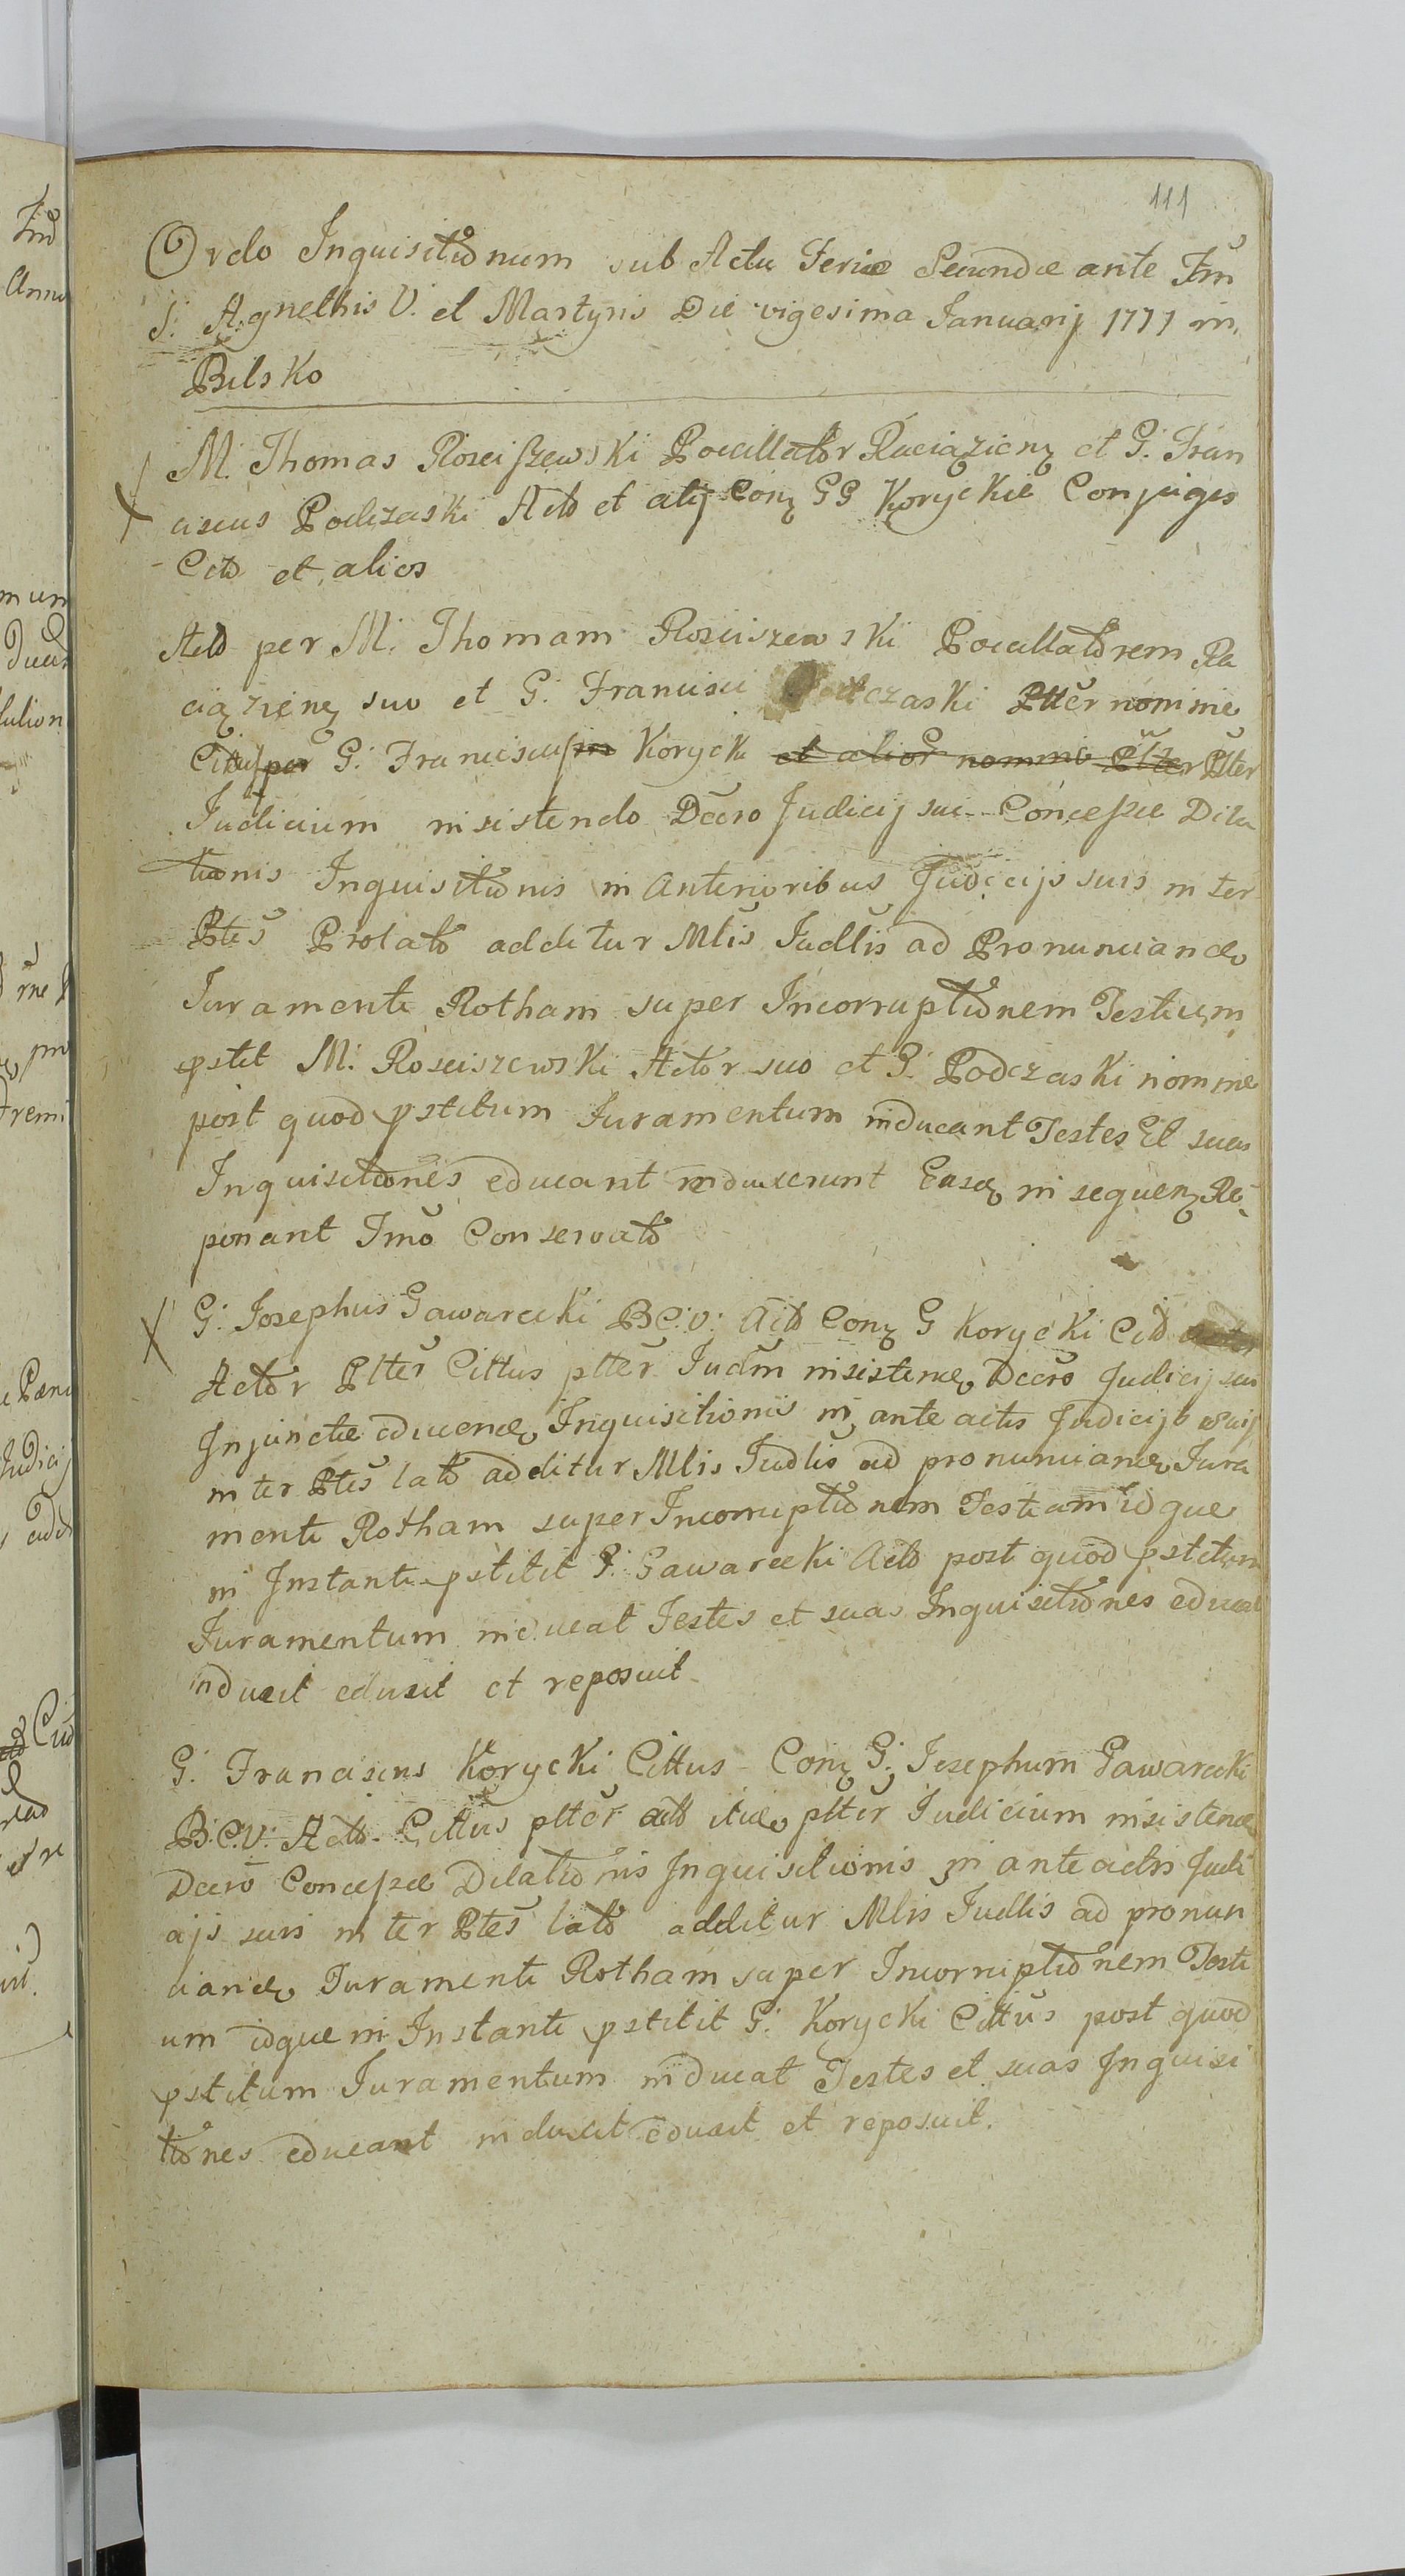 111
Ordo Inquisitionum sub Actu Feriæ Secundæ ante Fm
S: Agnethis V. et Martyris Die vigesima Januarij 1777 in
Bilsko
M. Thomas Rosciszewski Pocillator Raciązienz et G. Fran
ciscus Podczaski Acto et alij Conz GG Koryckie Conjuges
Citto et alios
Acto per M. Thomam Rosciszewski Pocillatorem Ra
ciązienz suo et G: Francisci Podczaski Ptter nomine
Cittus per G: Franciscum Korycki et alior nomine Ptter Ptter
Judicium insistendo Dcero Judicij sui Concessæ Dila
tionis Inquisitionis in Anterioribus Judicijs suis inter
Ptes Prolato additur Mlis Judlis ad Pronunciando
Juramenti Rotham super Incorruptionem Testium
pstit M: Rosciszewski Actor suo et G: Podczaski nomine
post quod pstitum Juramentum inducant Testes Et suas
Inquisitiones educant induxerunt Easq in sequenz Re
ponant Imo Conservato
G: Josephus Gawarecki B:C:V: Acto Conz G Korycki Citto
Actor Ptter Cittus ptter Judm insistendo Dcero Judicij sui
Injunctæ educendo Inquisitionis in ante actis Judicijs suis
inter Ptes lato additur Mlis Judlis ad pronunciando Jura
menti Rotham super Incorruptionem Testium idque
in Instanti pstitit G: Gawarecki Acto post quod pstitum
Juramentum inducat Testes et suas Inquisitiones educat
induxit eduxit et reposuit
G: Franciscus Korycki Cittus Conz G: Josephum Gawarecki
B:C:V: Acto Cittus ptter acto itido ptter Judicium insistendo
Dcero Concessæ Dilationis Inquisitionis in ante actis Judi
cijs suis inter Ptes lato additur Mlis Judlis ad pronun
ciando Juramenti Rotham super Incorruptionem Testi
um idque in Instanti pstitit G: Korycki Cittus post quod
pstitum Juramentum inducat Testes et suas Inquisi
tiones educant induxit eduxit et reposuit.